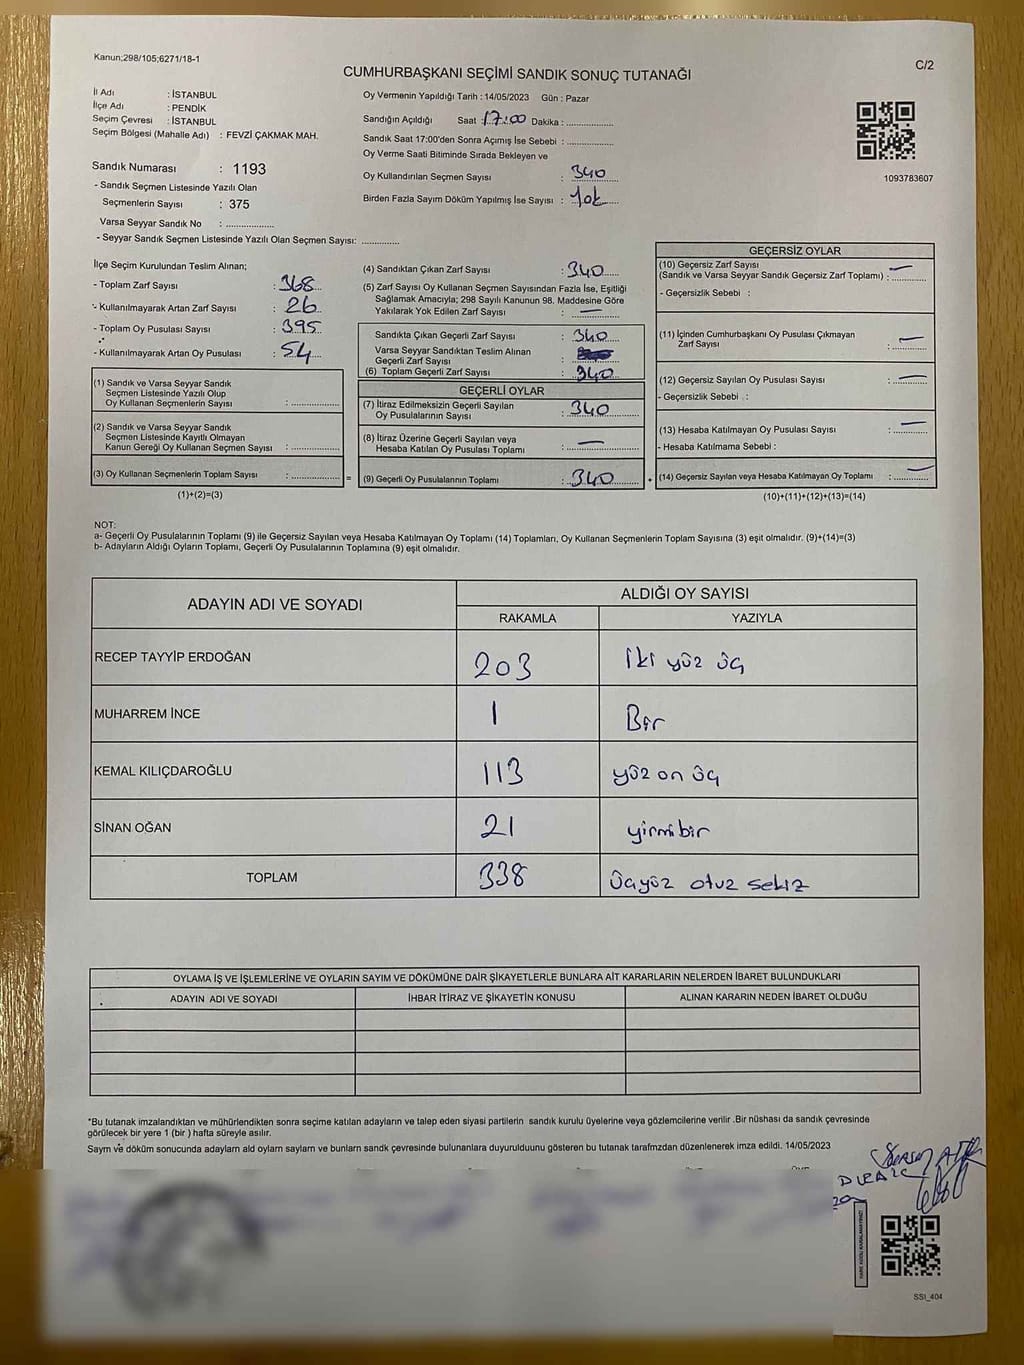 Kanun;298/105;6271/18-1
C/2
CUMHURBAŞKANI SEÇİMİ SANDIK SONUÇ TUTANAĞI
İl Adı : İSTANBUL
İlçe Adı : PENDİK
Seçim Çevresi : İSTANBUL
Seçim Bölgesi (Mahalle Adı) : FEVZİ ÇAKMAK MAH.
Sandık Numarası : 1193
- Sandık Seçmen Listesinde Yazılı Olan
Seçmenlerin Sayısı : 375
Varsa Seyyar Sandık No : ..................
- Seyyar Sandık Seçmen Listesinde Yazılı Olan Seçmen Sayısı: ..............
Oy Vermenin Yapıldığı Tarih : 14/05/2023 Gün : Pazar
Sandığın Açıldığı Saat : 17:00 Dakika : ..................
Sandık Saat 17:00'den Sonra Açımış İse Sebebi : ..................
Oy Verme Saati Bitiminde Sırada Bekleyen ve
Oy Kullandırılan Seçmen Sayısı : 340
Birden Fazla Sayım Döküm Yapılmış İse Sayısı : Yok
1093783607
İlçe Seçim Kurulundan Teslim Alınan;
- Toplam Zarf Sayısı : 368
- Kullanılmayarak Artan Zarf Sayısı : 26
- Toplam Oy Pusulası Sayısı : 395
- Kullanılmayarak Artan Oy Pusulası : 54
(1) Sandık ve Varsa Seyyar Sandık
Seçmen Listesinde Yazılı Olup
Oy Kullanan Seçmenlerin Sayısı : ..................
(2) Sandık ve Varsa Seyyar Sandık
Seçmen Listesinde Kayıtlı Olmayan
Kanun Gereği Oy Kullanan Seçmen Sayısı : ..................
(3) Oy Kullanan Seçmenlerin Toplam Sayısı : ..................
(1)+(2)=(3)
=
(4) Sandıktan Çıkan Zarf Sayısı : 340
(5) Zarf Sayısı Oy Kullanan Seçmen Sayısından Fazla İse, Eşitliği
Sağlamak Amacıyla; 298 Sayılı Kanunun 98. Maddesine Göre
Yakılarak Yok Edilen Zarf Sayısı : —
Sandıkta Çıkan Geçerli Zarf Sayısı : 340
Varsa Seyyar Sandıktan Teslim Alınan
Geçerli Zarf Sayısı :
(6) Toplam Geçerli Zarf Sayısı : 340
GEÇERLİ OYLAR
(7) İtiraz Edilmeksizin Geçerli Sayılan
Oy Pusulalarının Sayısı : 340
(8) İtiraz Üzerine Geçerli Sayılan veya
Hesaba Katılan Oy Pusulası Toplamı : —
(9) Geçerli Oy Pusulalarının Toplamı : 340
+
GEÇERSİZ OYLAR
(10) Geçersiz Zarf Sayısı
(Sandık ve Varsa Seyyar Sandık Geçersiz Zarf Toplamı) : —
- Geçersizlik Sebebi :
(11) İçinden Cumhurbaşkanı Oy Pusulası Çıkmayan
Zarf Sayısı : —
(12) Geçersiz Sayılan Oy Pusulası Sayısı : —
- Geçersizlik Sebebi :
(13) Hesaba Katılmayan Oy Pusulası Sayısı : —
- Hesaba Katılmama Sebebi :
(14) Geçersiz Sayılan veya Hesaba Katılmayan Oy Toplamı : —
(10)+(11)+(12)+(13)=(14)
NOT:
a- Geçerli Oy Pusulalarının Toplamı (9) ile Geçersiz Sayılan veya Hesaba Katılmayan Oy Toplamı (14) Toplamları, Oy Kullanan Seçmenlerin Toplam Sayısına (3) eşit olmalıdır. (9)+(14)=(3)
b- Adayların Aldığı Oyların Toplamı, Geçerli Oy Pusulalarının Toplamına (9) eşit olmalıdır.
ADAYIN ADI VE SOYADI
ALDIĞI OY SAYISI
RAKAMLA YAZIYLA
RECEP TAYYİP ERDOĞAN 203 iki yüz üç
MUHARREM İNCE 1 Bir
KEMAL KILIÇDAROĞLU 113 yüz on üç
SİNAN OĞAN 21 yirmi bir
TOPLAM 338 üçyüz otuz sekiz
OYLAMA İŞ VE İŞLEMLERİNE VE OYLARIN SAYIM VE DÖKÜMÜNE DAİR ŞİKAYETLERLE BUNLARA AİT KARARLARIN NELERDEN İBARET BULUNDUKLARI
ADAYIN ADI VE SOYADI İHBAR İTİRAZ VE ŞİKAYETİN KONUSU ALINAN KARARIN NEDEN İBARET OLDUĞU
*Bu tutanak imzalandıktan ve mühürlendikten sonra seçime katılan adayların ve talep eden siyasi partilerin sandık kurulu üyelerine veya gözlemcilerine verilir .Bir nüshası da sandık çevresinde
görülecek bir yere 1 (bir ) hafta süreyle asılır.
Sayım ve döküm sonucunda adayların ald oyların sayların ve bunların sandk çevresinde bulunanlara duyurulduunu gösteren bu tutanak tarafmzdan düzenlenerek imza edildi. 14/05/2023
SSI_404